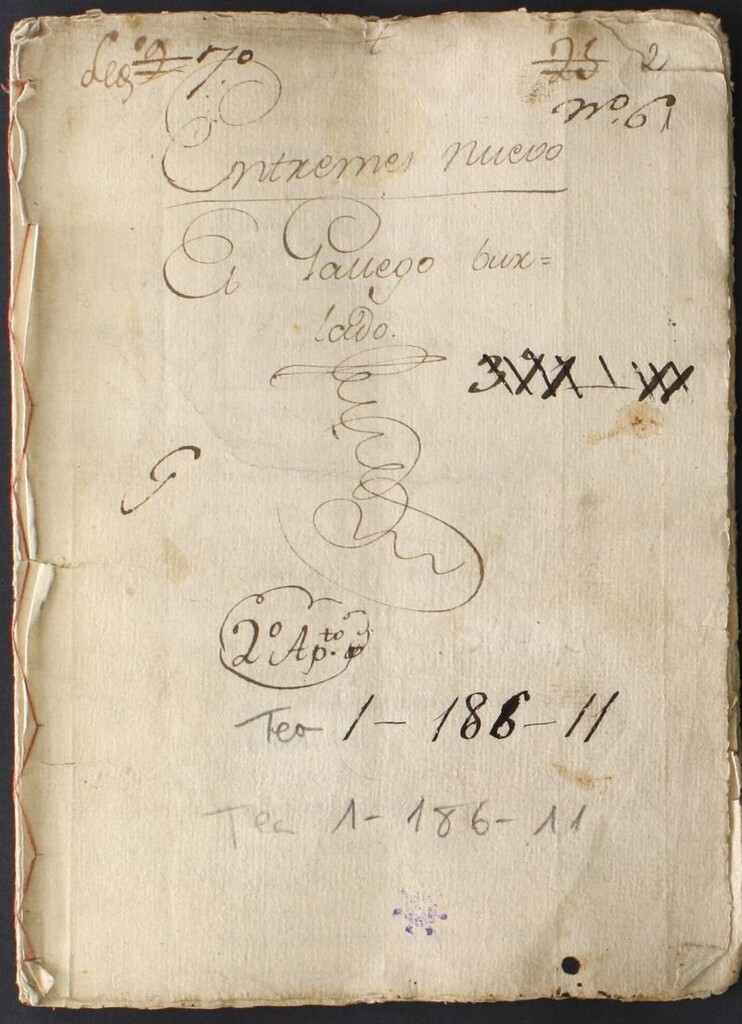 Leg.º 9 70
25 2
Nº. 6
Entremes nuevo
El Gallego bur=
lado.
2º Ap.to
Tea 1-186-11
Tea 1-186-11